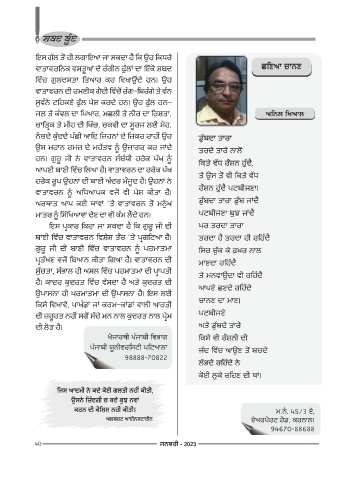 ਸ਼ਬਦ ਬੂੰਦ
ਇਸ ਗੱਲ ਤੋਂ ਹੀ ਲਗਾਇਆ ਜਾ ਸਕਦਾ ਹੈ ਕਿ ਉਹ ਕਿਧਰੇ
ਵਾਤਾਵਰਨਿਕ ਵਸਤੂਆਂ ਦੇ ਰੰਗੀਨ ਫੁੱਲਾਂ ਦਾ ਇੱਕੋ ਸ਼ਬਦ
ਵਿੱਚ ਗੁਲਦਸਤਾ ਤਿਆਰ ਕਰ ਦਿਖਾਉਂਦੇ ਹਨ। ਉਹ
ਵਾਤਾਵਰਨ ਦੀ ਰਮਣੀਕ ਗੋਦੀ ਵਿੱਚੋਂ ਰੰਗ-ਬਿਰੰਗੇ ਤੇ ਵੰਨ
ਸੁਵੰਨੇ ਟਹਿਕਦੇ ਫੁੱਲ ਪੇਸ਼ ਕਰਦੇ ਹਨ। ਉਹ ਫੁੱਲ ਹਨ-
ਜਲ ਤੇ ਕੰਵਲ ਦਾ ਪਿਆਰ, ਮਛਲੀ ਤੇ ਨੀਰ ਦਾ ਰਿਸ਼ਤਾ,
ਚਾਤ੍ਰਿਕ ਤੇ ਮੀਂਹ ਦੀ ਖਿੱਚ, ਚਕਵੀ ਦਾ ਸੂਰਜ ਲਈ ਮੋਹ,
ਨੱਚਦੇ ਕੁੱਦਦੇ ਪੰਛੀ ਆਦਿ ਜਿਹਨਾਂ ਦੇ ਜ਼ਿਕਰ ਰਾਹੀਂ ਉਹ
ਉਸ ਮਹਾਨ ਰਮਜ਼ ਦੇ ਮਹੱਤਵ ਨੂੰ ਉਜਾਗਰ ਕਰ ਜਾਂਦੇ
ਹਨ। ਗੁਰੂ ਜੀ ਨੇ ਵਾਤਾਵਰਨ ਸੰਬੰਧੀ ਹਰੇਕ ਪੱਖ ਨੂੰ
ਆਪਣੀ ਬਾਣੀ ਵਿੱਚ ਲਿਆ ਹੈ। ਵਾਤਾਵਰਨ ਦਾ ਹਰੇਕ ਪੱਖ
ਹਰੇਕ ਰੂਪ ਉਹਨਾਂ ਦੀ ਬਾਣੀ ਅੰਦਰ ਮੌਜੂਦ ਹੈ। ਉਹਨਾਂ ਨੇ
ਵਾਤਾਵਰਨ ਨੂੰ ਅਧਿਆਪਕ ਵਜੋਂ ਵੀ ਪੇਸ਼ ਕੀਤਾ ਹੈ।
ਅਰਥਾਤ ਆਪ ਕਈ ਥਾਵਾਂ 'ਤੇ ਵਾਤਾਵਰਨ ਤੋਂ ਮਨੁੱਖ
ਮਾਤਰ ਨੂੰ ਸਿੱਖਿਆਵਾਂ ਦੇਣ ਦਾ ਵੀ ਕੰਮ ਲੈਂਦੇ ਹਨ।
ਇਸ ਪ੍ਰਕਾਰ ਕਿਹਾ ਜਾ ਸਕਦਾ ਹੈ ਕਿ ਗੁਰੂ ਜੀ ਦੀ
ਬਾਣੀ ਵਿੱਚ ਵਾਤਾਵਰਨ ਵਿਸ਼ੇਸ਼ ਤੌਰ 'ਤੇ ਪ੍ਰਗਟਿਆ ਹੈ।
ਗੁਰੂ ਜੀ ਦੀ ਬਾਣੀ ਵਿੱਚ ਵਾਤਾਵਰਨ ਨੂੰ ਪਰਮਾਤਮਾ
ਪ੍ਰਤੱਖਣ ਵਜੋਂ ਬਿਆਨ ਕੀਤਾ ਗਿਆ ਹੈ। ਵਾਤਾਵਰਨ ਦੀ
ਸੁੱਚਤਾ, ਸੰਭਾਲ ਹੀ ਅਸਲ ਵਿੱਚ ਪਰਮਾਤਮਾ ਦੀ ਪ੍ਰਾਪਤੀ
ਹੈ। ਕਾਦਰ ਕੁਦਰਤ ਵਿੱਚ ਵੱਸਦਾ ਹੈ ਅਤੇ ਕੁਦਰਤ ਦੀ
ਉਪਾਸਨਾ ਹੀ ਪਰਮਾਤਮਾ ਦੀ ਉਪਾਸਨਾ ਹੈ। ਇਸ ਲਈ
ਕਿਸੇ ਦਿਖਾਵੇ, ਪਾਖੰਡਾਂ ਜਾਂ ਕਰਮ-ਕਾਂਡਾਂ ਵਾਲੀ ਆਰਤੀ
ਦੀ ਜ਼ਰੂਰਤ ਨਹੀਂ ਸਗੋਂ ਸੱਚੇ ਮਨ ਨਾਲ ਕੁਦਰਤ ਨਾਲ ਪ੍ਰੇਮ
ਦੀ ਲੋੜ ਹੈ।
ਖੋਜਾਰਥੀ ਪੰਜਾਬੀ ਵਿਭਾਗ
ਪੰਜਾਬੀ ਯੂਨੀਵਰਸਿਟੀ ਪਟਿਆਲਾ
98888-70822
ਜਿਸ ਆਦਮੀ ਨੇ ਕਦੇ ਕੋਈ ਗਲਤੀ ਨਹੀਂ ਕੀਤੀ,
ਉਸਨੇ ਜ਼ਿੰਦਗੀ ਚ ਕਦੇ ਕੁਝ ਨਵਾਂ
ਕਰਨ ਦੀ ਕੋਸ਼ਿਸ਼ ਨਹੀਂ ਕੀਤੀ।
ਅਲਬਰਟ ਆਈਨਸਟਾਈਨ
ਛਣਿਆ ਚਾਨਣ
ਅਨਿਲ ਖਿਆਲ
ਡੁੱਬਦਾ ਤਾਰਾ
ਤਰਦੇ ਤਾਰੇ ਨਾਲੋਂ
ਕਿਤੇ ਵੱਧ ਰੌਸ਼ਨ ਹੁੰਦੈ,
ਤੇ ਉਸ ਤੋਂ ਵੀ ਕਿਤੇ ਵੱਧ
ਰੌਸ਼ਨ ਹੁੰਦੀ ਪਟਬੀਜਣਾ।
ਡੁੱਬਦਾ ਤਾਰਾ ਡੁੱਬ ਜਾਂਦੈ
ਪਟਬੀਜਣਾ ਬੁਝ ਜਾਂਦੈ
ਪਰ ਤਰਦਾ ਤਾਰਾ
ਤਰਦਾ ਹੈ ਤਰਦਾ ਹੀ ਰਹਿੰਦੈ
ਸਿਰ ਚੁੱਕ ਕੇ ਫ਼ਖ਼ਰ ਨਾਲ
ਮਾਣਦਾ ਰਹਿੰਦੈ
ਤੇ ਮਨਵਾਉਂਦਾ ਵੀ ਰਹਿੰਦੈ
ਆਪਣੇ ਛਣਦੇ ਰਹਿੰਦੇ
ਚਾਨਣ ਦਾ ਮਾਣ।
ਪਟਬੀਜਣੇ
ਅਤੇ ਡੁੱਬਦੇ ਤਾਰੇ
ਕਿਸੇ ਵੀ ਰੌਸ਼ਨੀ ਦੀ
ਜ਼ੱਦ ਵਿੱਚ ਆਉਣ ਤੋਂ ਬਚਦੇ
ਲੱਭਦੇ ਰਹਿੰਦੇ ਨੇ
ਕੋਈ ਲੁਕੇ ਰਹਿਣ ਦੀ ਥਾਂ।
ਮ.ਨੰ. 45/3 ਏ,
ਏਅਰਪੋਰਟ ਰੋਡ, ਕਰਨਾਲ।
94670-88688
੪੦
ਜਨਵਰੀ - 2023